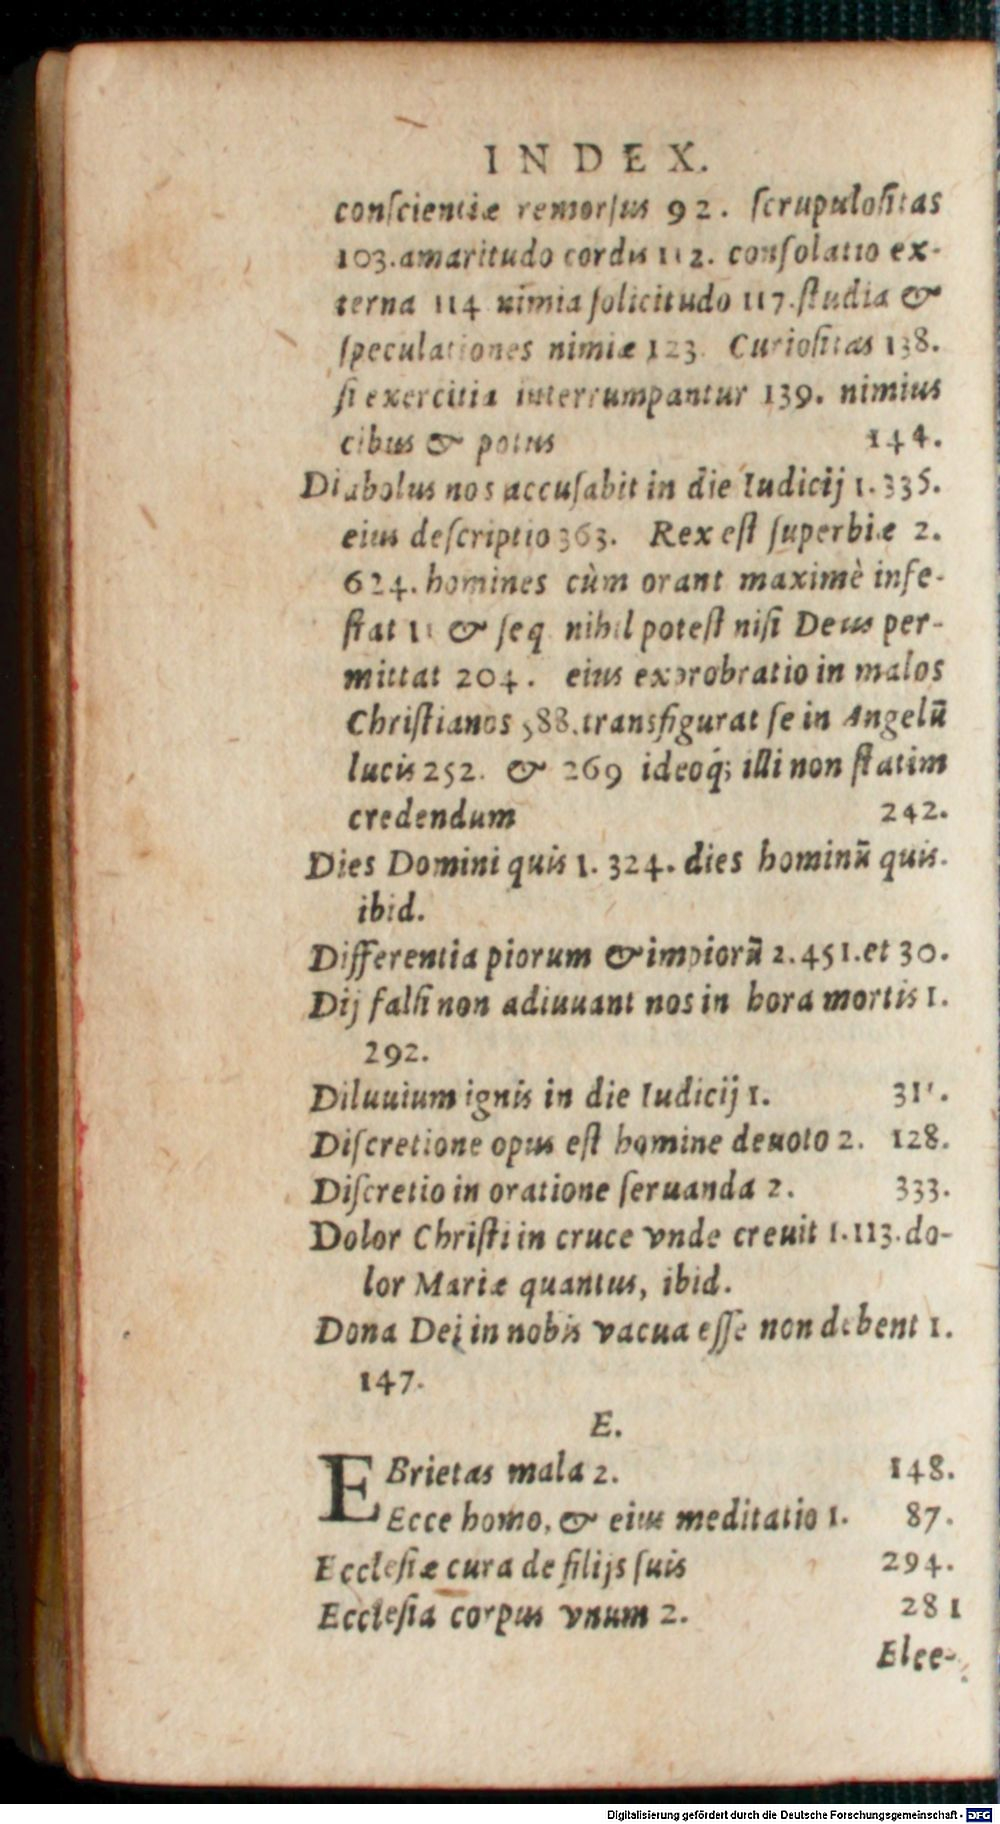 INDEX.
conſcientiæ remorſus 92. ſcrupuloſitas
103. amaritudo cordis 112. conſolatio ex-
terna 114 nimia ſolicitudo 117. ſtudia &
ſpeculationes nimiæ 123. Curioſitas 138.
ſi exercitia interrumpantur 139. nimius
cibus & potus 144.
Diabolus nos accuſabit in die Iudicij 1. 335.
eius deſcriptio 363. Rex eſt ſuperbiæ 2.
624. homines cùm orant maximè infe-
ſtat & ſeq nihil poteſt niſi Deus per-
mittat 204. eius exprobratio in malos
Chriſtianos 588. transfigurat ſe in Angelū
lucis 252. & 269 ideoq́; illi non ſtatim
credendum 242.
Dies Domini quis 1. 324. dies hominū quis.
ibid.
Differentia piorum & impiorū 2. 451. et 30.
Dij falſi non adiuuant nos in hora mortis 1.
292.
Diluuium ignis in die Iudicij 1.
Diſcretione opus eſt homine deuoto 2. 128.
Diſcretio in oratione ſeruanda 2. 333.
Dolor Chriſti in cruce vnde creuit 1. 113. do-
lor Mariæ quantus, ibid.
Dona Dei in nobis vacua eſſe non debent 1.
147.
E.
EBrietas mala 2. 148.
Ecce homo, & eius meditatio 1. 87.
Eccleſiæ cura de filijs ſuis 294.
Eccleſia corpus vnum 2. 281
Elee-
Digitalisierung gefördert durch die Deutsche Forschungsgemeinschaft - DFG